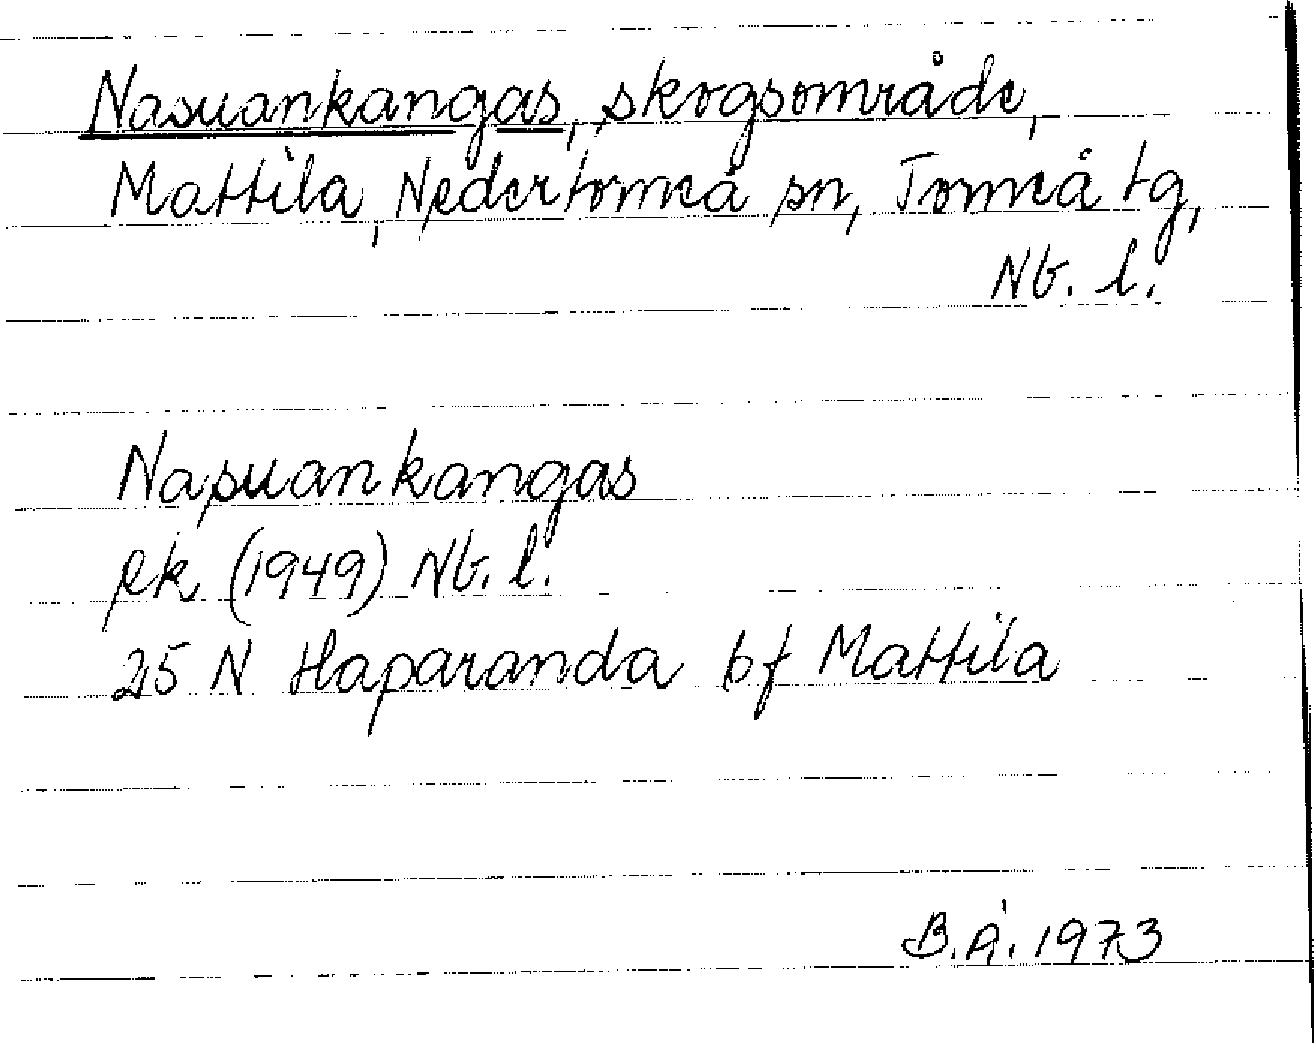 Nasuankangas, skogsområde,
Mattila, Nedertorneå sn, Torneå tg,
Nb. l.
Napuankangas
ek (1949) Nb. l.
25 N Haparanda bf Mattila
B.Å. 1973